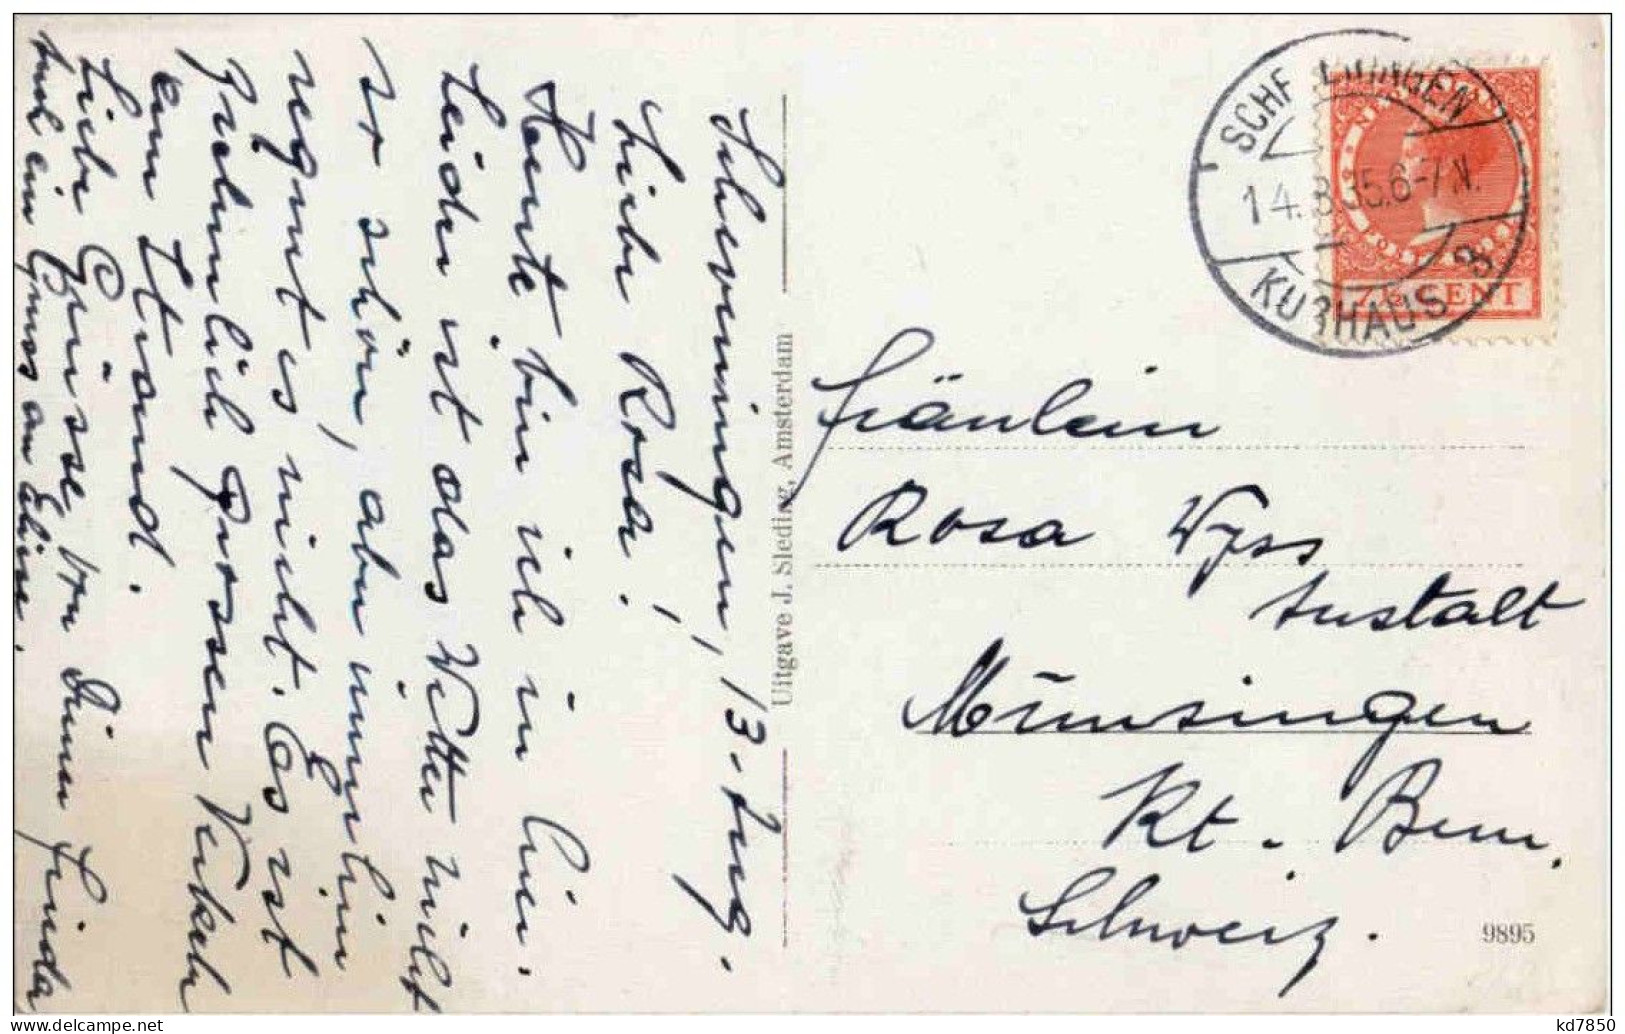 Scheveningen, 13. Aug.
Liebe Rosa!
Heute bin ich in hier.
Leider ist das Wetter nicht
so schön, aber immerhin
regnet es nicht. Es ist
ziemlich grossen Verkehr
am Strand.
Liebe Grüsse von Deiner Frieda
und ein Gruss an Eline.
Uitgave J. Sleding, Amsterdam
SCHEVENINGEN
14.8.35.6-7N.
KURHAUS 3
7½ CENT
Fräulein
Rosa Wyss
Anstalt
Münsingen
Kt. Bern.
Schweiz.
9895
kd7850